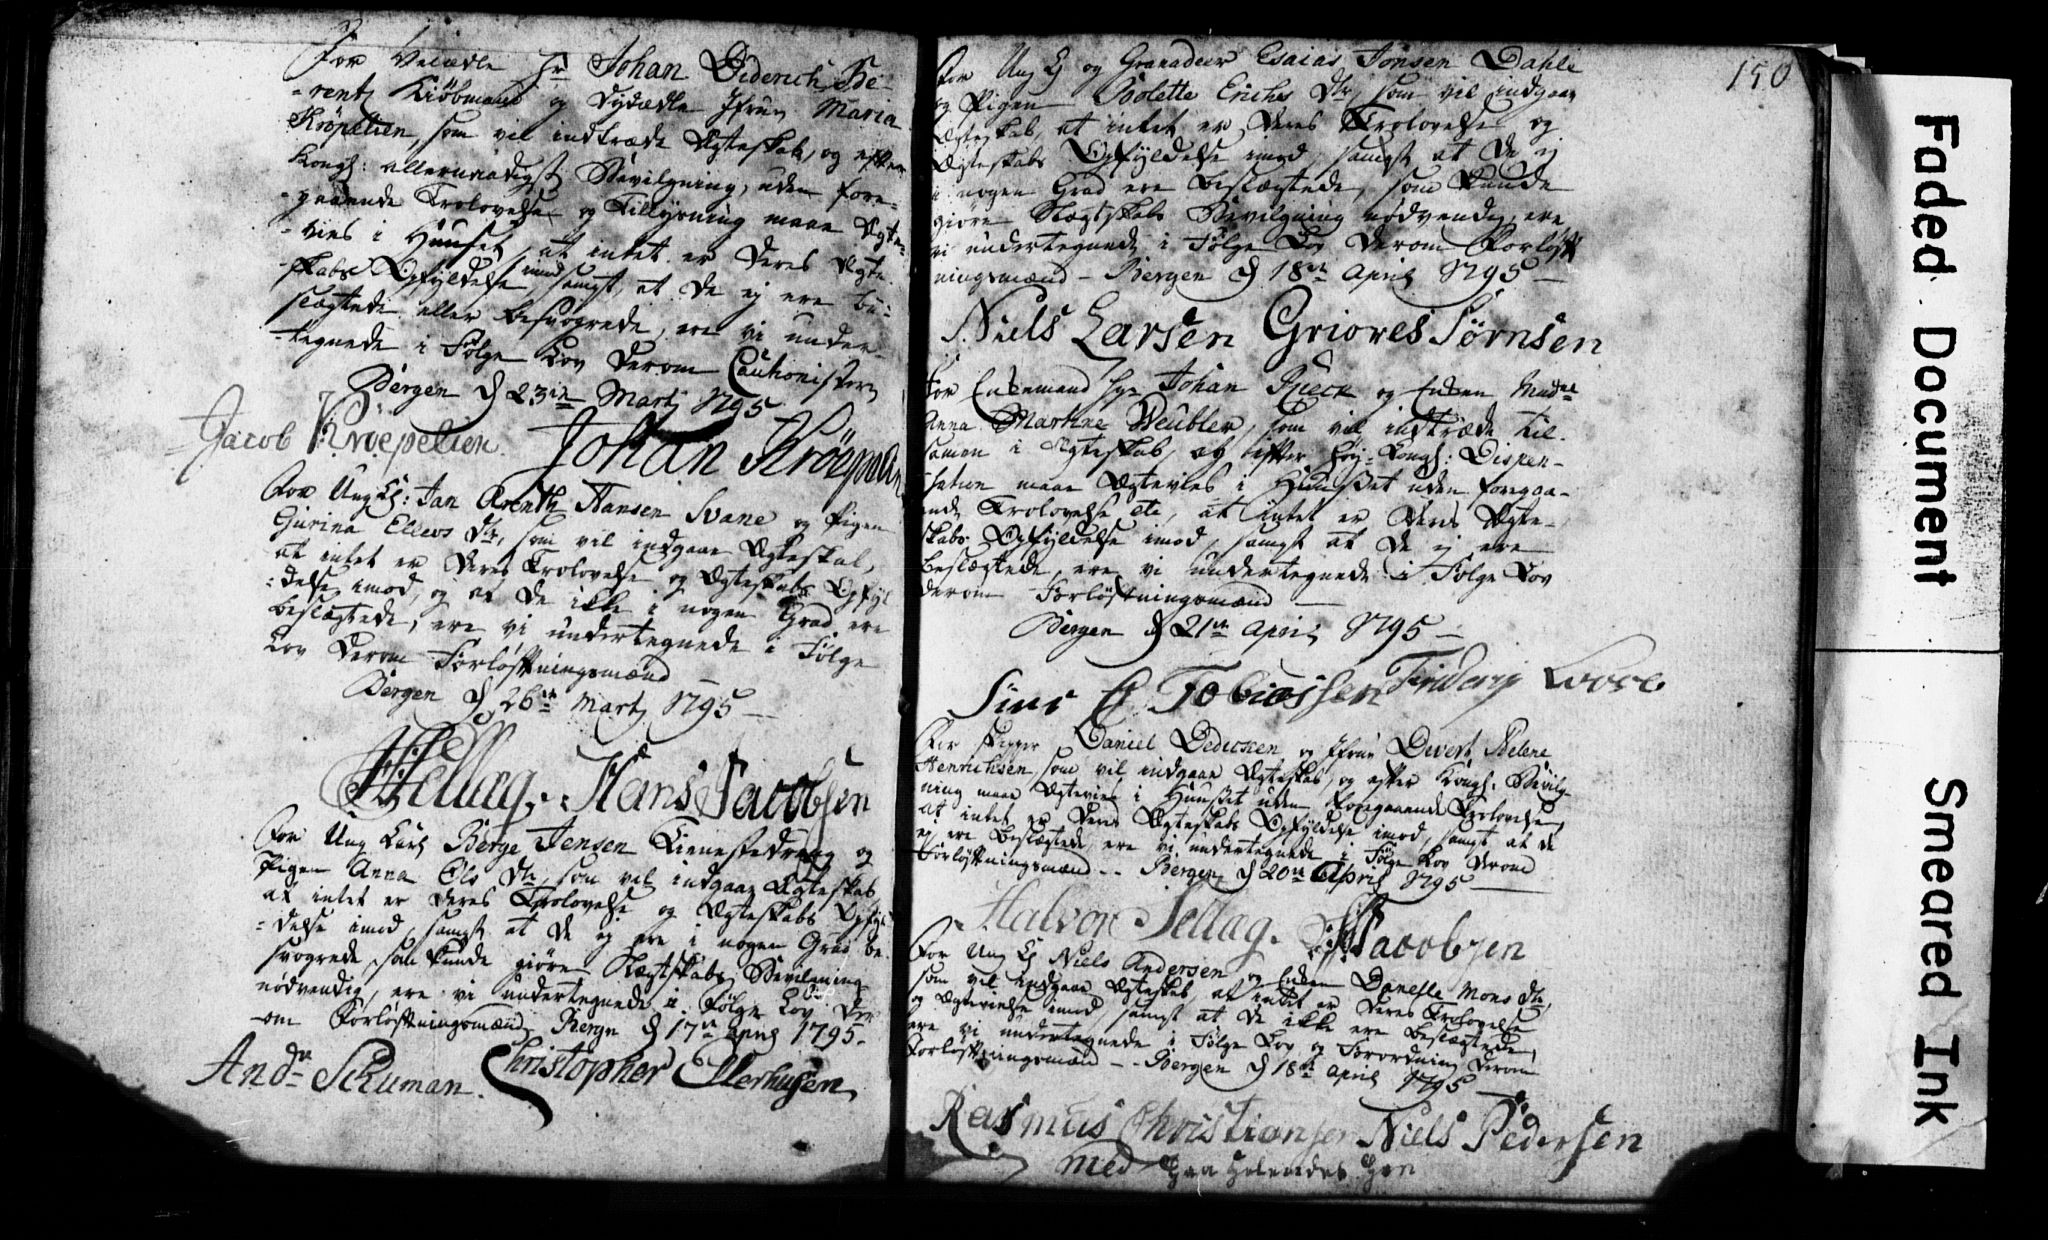 For Velædle Hr Johan Diderich Be-
-rentz Kiøbmand og Dydædle Jfrue Maria
Krøpelien, som vil indtræde Ægteskab, og efter
Kongl: allernaadigst Bevilgning, uden fore-
-gaaende Trolovelse og Tillysning maae Ægte-
-vies i Huuset, at intet er deres Ægte-
-skabs Opfyldelse imod, samt at de ej ere be-
slægtede eller besvogrede, ere vi under-
-tegnede i Følge Lov derom Cautionister,
Bergen d 23de Martj 1795
Jacob Kroepelien. Johan Kröepelien
For Ung K: Jan Arenth Hansen Svane og Pigen
Gurina Ellevs dtr, som vil indgaae Ægteskab,
at intet er deres Trolovelse og Ægteskabs Opfyl
-delse imod, og at de ikke i nogen Grad ere
beslægtede, ere vi undertegnede i Følge
Lov derom Forløftningsmænd —
Bergen d 26de Martj 1795 —
HTellag. Hans Jacobsen
For Ung Karl Børge Jensen Tienestedreng og
Pigen Anna Ols dtr, som vil indgaae Ægteskab,
at intet er deres Trolovelse og Ægteskabs Opfyl
-delse imod, samt at de ej ere i nogen Grad be
svogrede, som kunde giøre Slægtskabs Bevilgning
nødvendig, ere vi undertegnede i Følge Lov der
-om Forløftningsmænd, Bergen d 17de April 1795.
Andr Schuman. Christopher Ellerhusen
150
For Ung K og Granadeer Esaias Jonsen Dahle
og Pigen Bolette Erichs dtr, som vil indgaae
Ægteskab, at intet er deres Trolovelse og
Ægteskabs Opfyldelse imod, samt at de ej
i nogen Grad ere beslægtede, som kunde
giøre Slægtskabs Bevilgning nødvendig, ere
vi undertegnede i Følge Lov derom Forløft
ningsmænd — Bergen d 18de April 1795 —
Niels Larsen Griores Sørnsen
For Enkemand Hr Johan Rieck og Enken Madme
Anna Martine Deubler, som vil indtræde til-
samen i Ægteskab, og efter Høy-Kongl: Dispen-
sation maae Ægtevies i Huuset uden foregaa-
ende Trolovelse etc, at intet er deres Ægte-
skabs Opfyldelse imod, samt at de ej ere
beslægtede, ere vi undertegnede i Følge Lov
derom Forløftningsmænd —
Bergen d 21de April 1795 —
Tobiassen Friderig
For Skipper Daniel Dedecken og Jfrue Divert Helene
Henrichsen, som vil indgaae Ægteskab, og efter Kongl. Bevilg-
ning maae Ægtevies i Huuset uden foregaaende Trolovelse,
at intet er deres Ægteskabs Opfyldelse imod, samt at de
ej ere beslægtede, ere vi undertegnede i Følge Lov derom
Forløftningsmænd -- Bergen d 20de April 1795 —
Halvor Tellag. HJacobsen
For Ung K Niels Andersen og Enken Danelle Mons dtr,
som vil indgaae Ægteskab, at intet er deres Trolovelse
og Ægtevielse imod, samt at de ikke ere beslægtede,
ere vi undertegnede i Følge Lov og Forordning derom
Forløftningsmænd -- Bergen d 18de April 1795
Rasmus Christiansen Niels Pedersen
med paa holendes Pen
Faded Document Smeared Ink